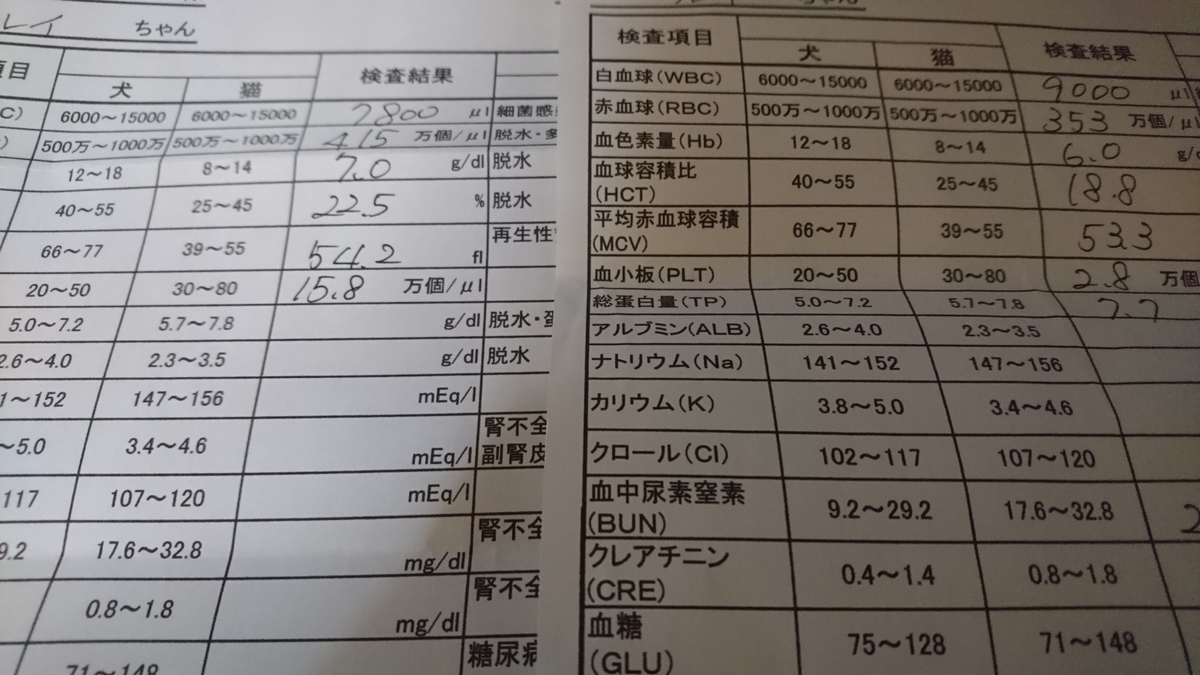 レイ ちゃん
項目 犬 猫 検査結果
C) 6000～15000 6000～15000 7800 μl 細菌感
500万～1000万 500万～1000万 415 万個/μl 脱水・多
12～18 8～14 7.0 g/dl 脱水
40～55 25～45 22.5 % 脱水
66～77 39～55 54.2 fl 再生性
20～50 30～80 15.8 万個/μl
5.0～7.2 5.7～7.8 g/dl 脱水・蛋
2.6～4.0 2.3～3.5 g/dl 脱水
1～152 147～156 mEq/l
～5.0 3.4～4.6 mEq/l 腎不全
副腎皮
117 107～120 mEq/l
9.2 17.6～32.8 mg/dl 腎不全
0.8～1.8 mg/dl 腎不全
71～148 糖尿病
ちゃん
検査項目 犬 猫 検査結果
白血球(WBC) 6000～15000 6000～15000 9000 μl
赤血球(RBC) 500万～1000万 500万～1000万 353 万個/μ
血色素量(Hb) 12～18 8～14 6.0 g/d
血球容積比
(HCT) 40～55 25～45 18.8
平均赤血球容積
(MCV) 66～77 39～55 53.3
血小板(PLT) 20～50 30～80 2.8 万個
総蛋白量(TP) 5.0～7.2 5.7～7.8 7.7
アルブミン(ALB) 2.6～4.0 2.3～3.5
ナトリウム(Na) 141～152 147～156
カリウム(K) 3.8～5.0 3.4～4.6
クロール(Cl) 102～117 107～120
血中尿素窒素
(BUN) 9.2～29.2 17.6～32.8 2
クレアチニン
(CRE) 0.4～1.4 0.8～1.8
血糖
(GLU) 75～128 71～148